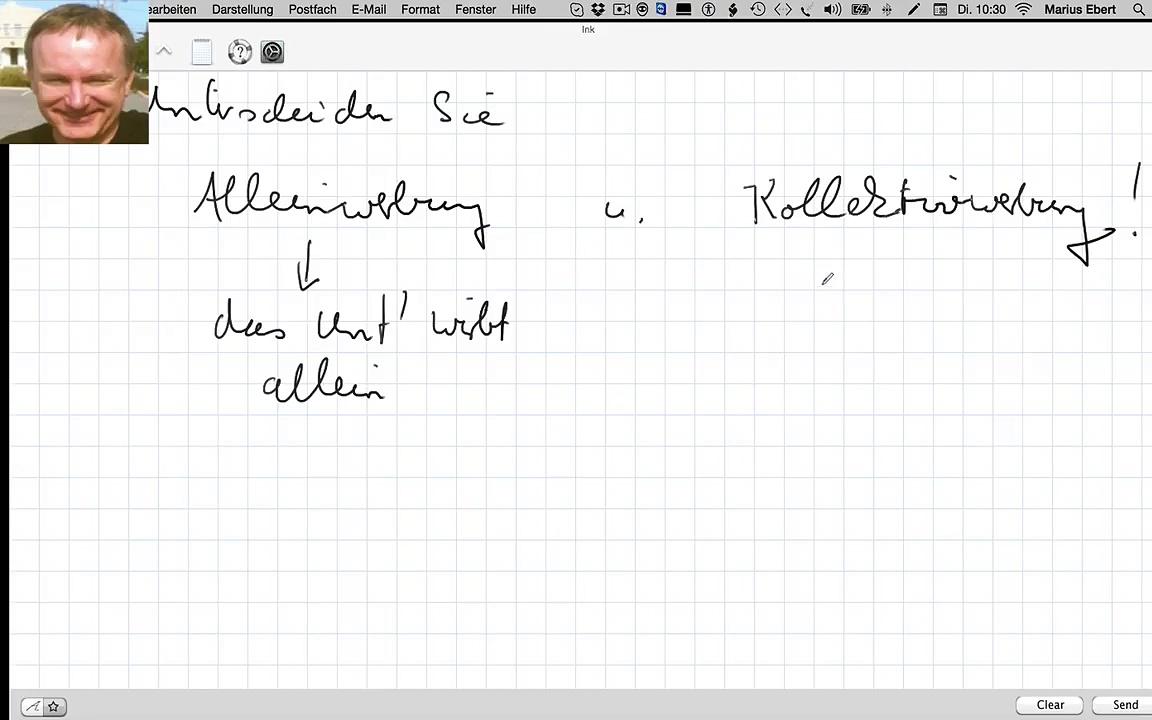 earbeiten Darstellung Postfach E-Mail Format Fenster Hilfe Di. 10:30 Marius Ebert
Ink
Unterscheiden Sie
Alleinwerbung u. Kollektivwerbung!
das Unt' wirbt
allein
Clear Send